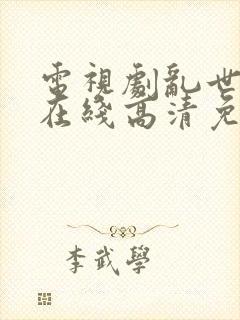 電視劇亂世
在綫高清免
李武學